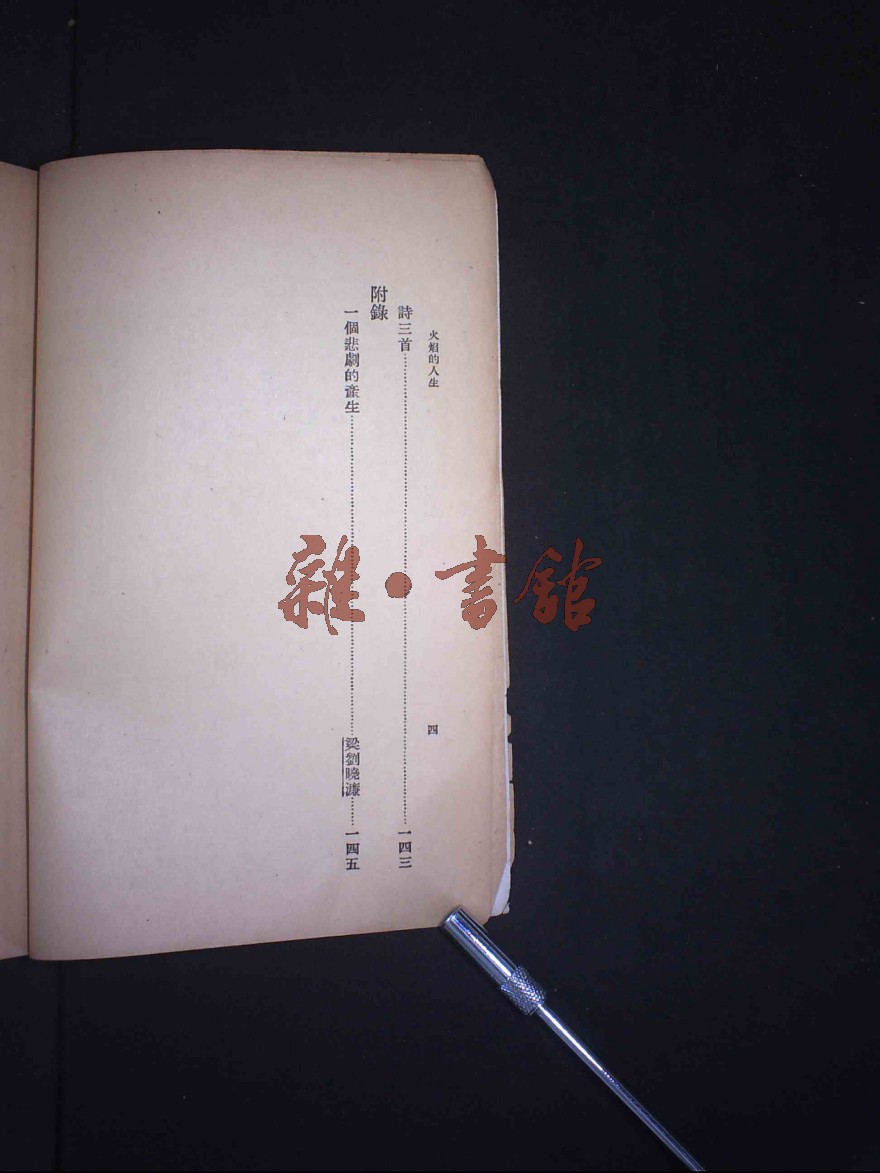 火焰的人生
四
詩三首……一四三
附錄
一個悲劇的產生……梁劉曉濂……一四五
雜·書館